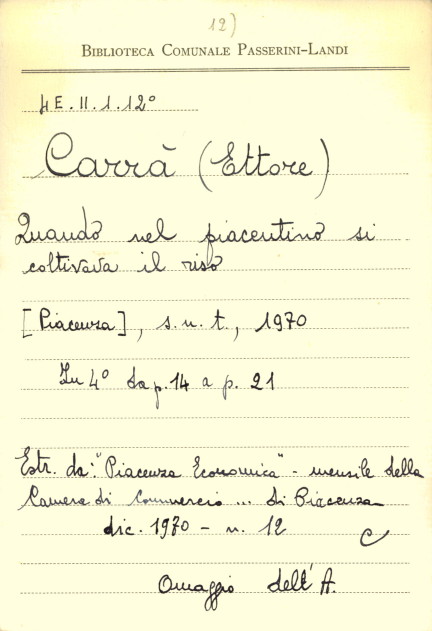 12)
BIBLIOTECA COMUNALE PASSERINI-LANDI
4E.II.1.12°
Carrà (Ettore)
Quando nel piacentino si
coltivava il riso
[Piacenza], s.n.t., 1970
In 4° da p.14 a p. 21
Estr. da: "Piacenza Economica" - mensile della
Camera di Commercio ... di Piacenza
dic. 1970 - n. 12
C
Omaggio dell'A.